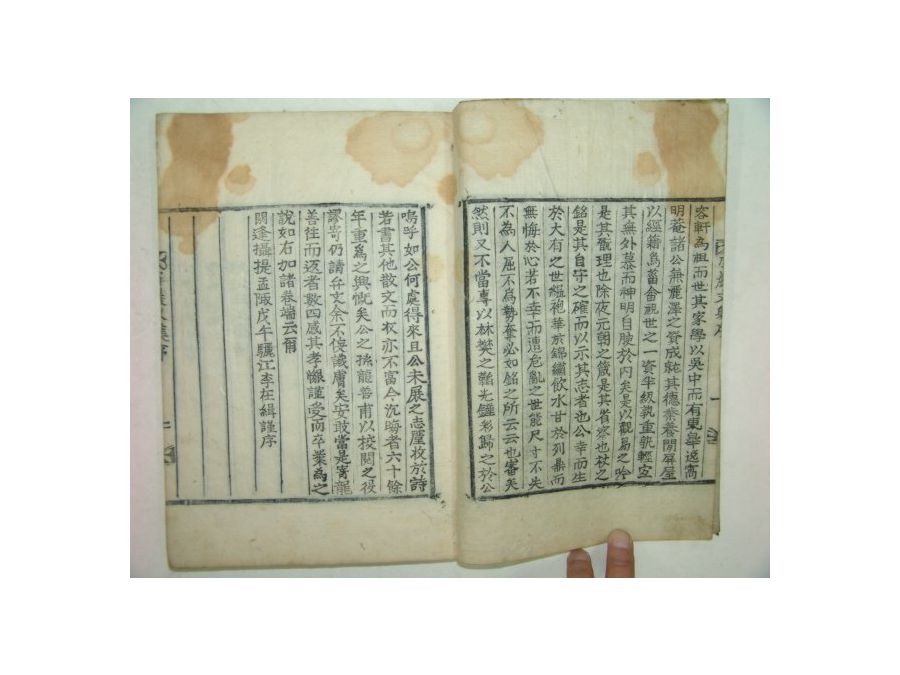 容軒為祖而世其家學以吳中而有東華遠
明菴諸公無麗澤之資成就其德業養閒屏屋
以經籍為菑畬視世之一資半級執重執輕
其無外慕而神明自腴於內矣是以觀易之吟
是其玩理也除夜元朝之箴是其省察也杖之
銘是其自守之確而以示其志者也公幸而生
於大有之世縕袍華於錦繡飲水甘於列鼎而
無悔於心若不幸而遭危亂之世能尺寸不失
不為人屈不為勢奪必如銘之所云云也審矣
然則又不當專以林樊之韜光鏟彩歸之於公
嗚呼如公何處得來且公未展之志屋收於詩
若書其他散文而收亦不富今沉晦者六十餘
年重為之興慨矣公之孫龍善甫以校閱之役
謬寄仍請弁文余不佞識膚矣安敢當是寄龍
善往而返者數四感其孝懃謹受而卒業為之
說如右加諸卷端云爾
閼逢攝提孟陬戊午驪江李在緝謹序